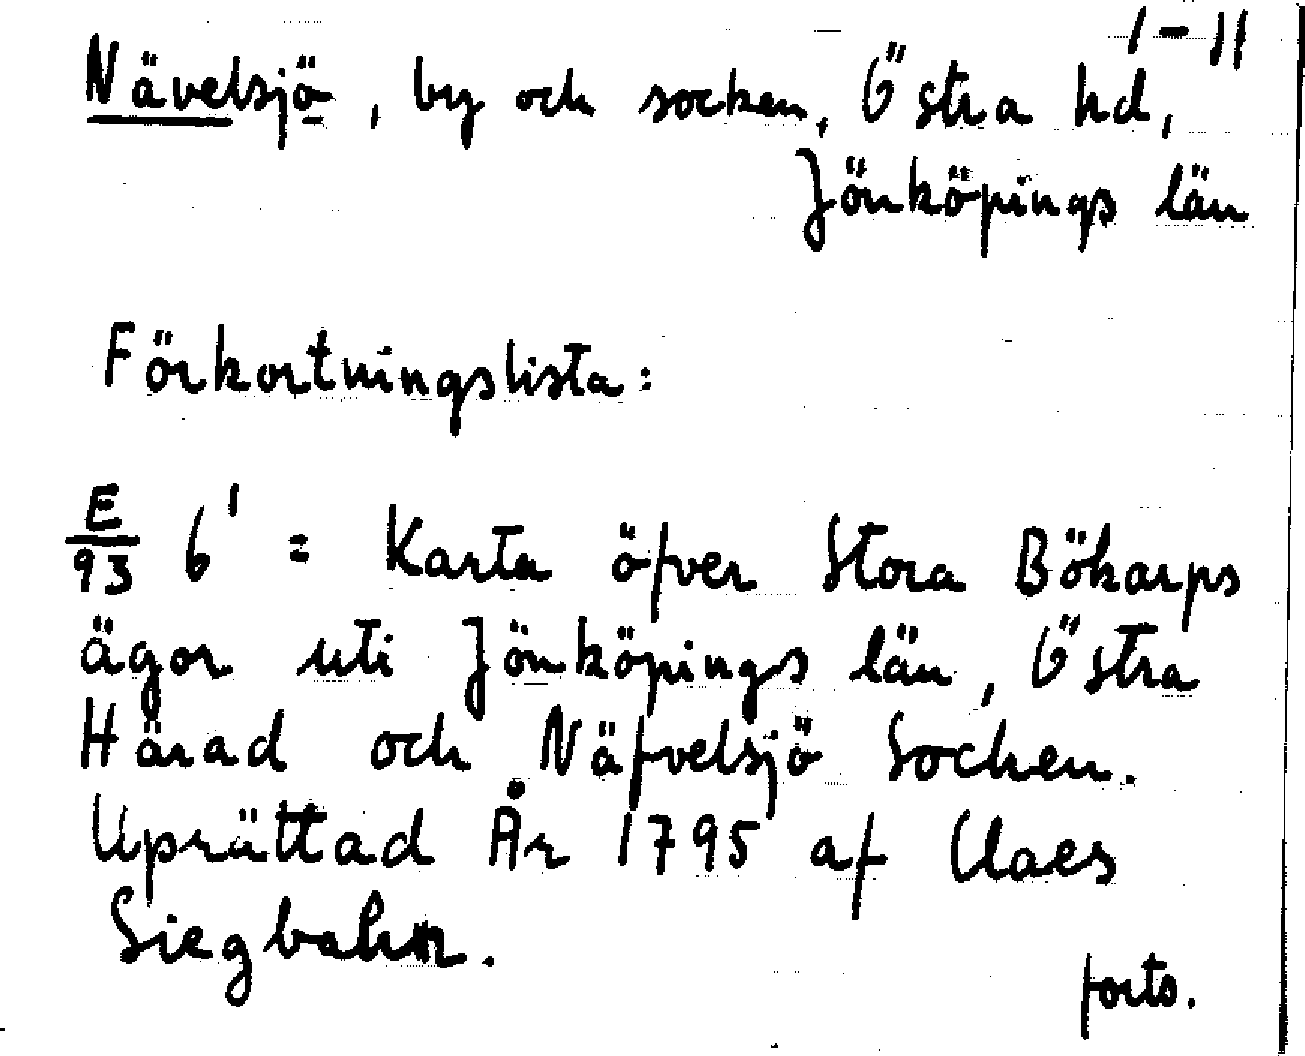 1-11
Nävelsjö, by och socken, Östra hd,
Jönköpings län
Förkortningslista:
E/93 6¹ = Karta öfver Stora Bökarps
ägor uti Jönköpings län, Östra
Härad och Näfvelsjö Socken.
Uprättad År 1795 af Claes
Siegbahn.
forts.